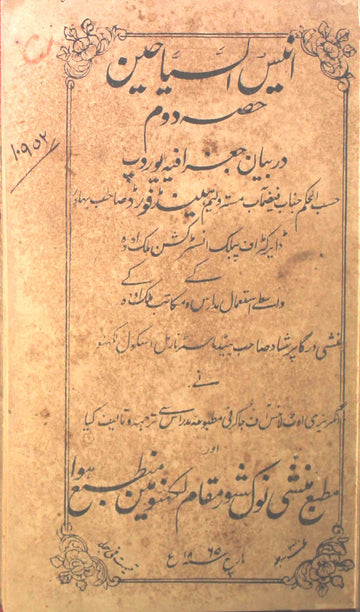 انیس السیاحین
حصہ دوم
در بیان جغرافیہ یوروپ
حسب الحکم جناب فیضمآب مستر ولیم ہینڈفورڈ صاحب بہادر
ڈایرکٹر آف پبلک انسٹرکشن ملک اودہ
کے
واسطے استعمال مدارس و مکاتب ملک اودہ کے
منشی درگا پرشاد صاحب ہیڈ ماسٹر نارمل اسکول لکھنؤ
نے
انگریزی اوٹ لاینس آف جاگرفی مطبوعہ مدراس سے ترجمہ و تالیف کیا
اور
مطبع منشی نولکشور مقام لکھنؤ مین منطبع ہوا
مارچ ۱۸۶۵ع
۱۰۹۵۲